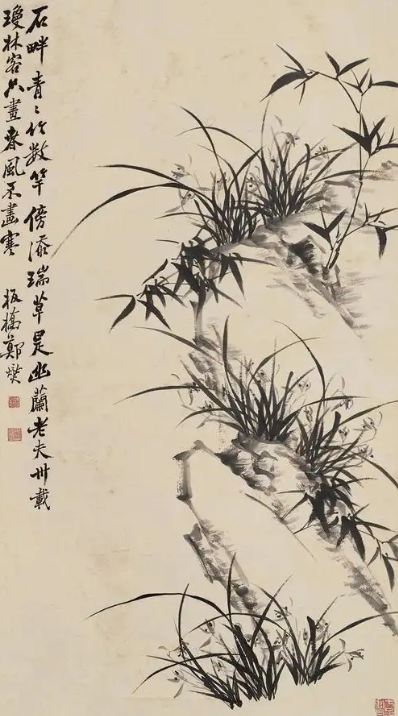 石畔青々竹数竿傍添瑞草是幽蘭老夫卅載
瓊林客只畫春風不畫寒　板橋鄭燮